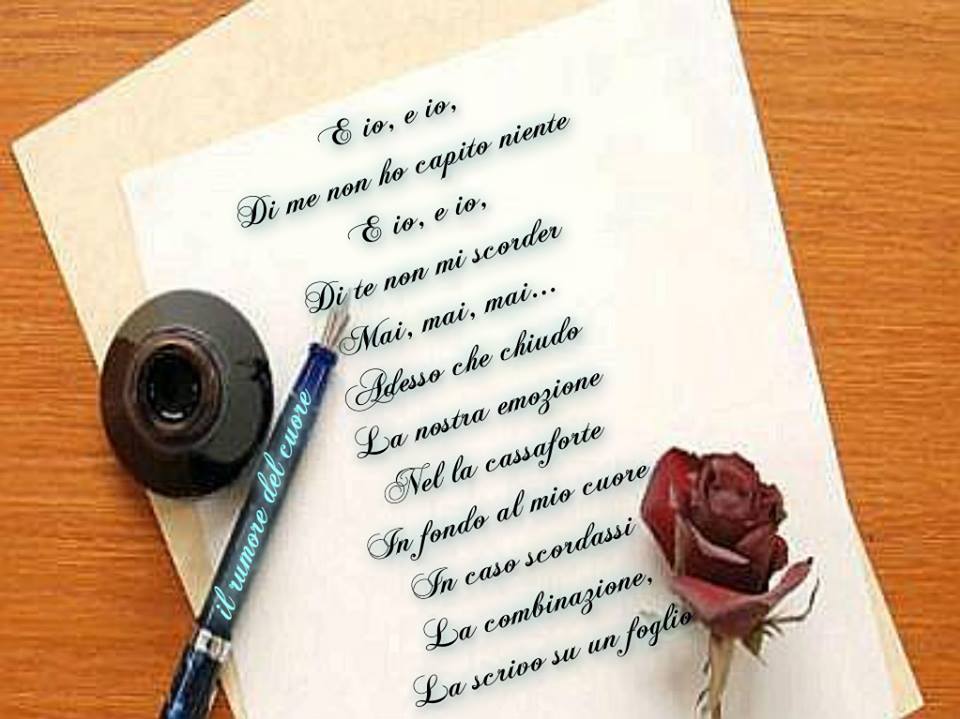 E io, e io,
Di me non ho capito niente
E io, e io,
Di te non mi scorder
Mai, mai, mai...
Adesso che chiudo
La nostra emozione
Nel la cassaforte
In fondo al mio cuore
In caso scordassi
La combinazione,
La scrivo su un foglio
il rumore del cuore